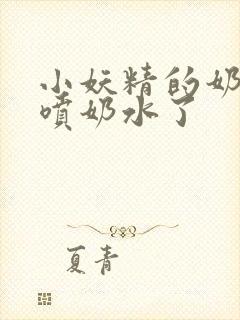 小妖精的奶
喷奶水了
夏青